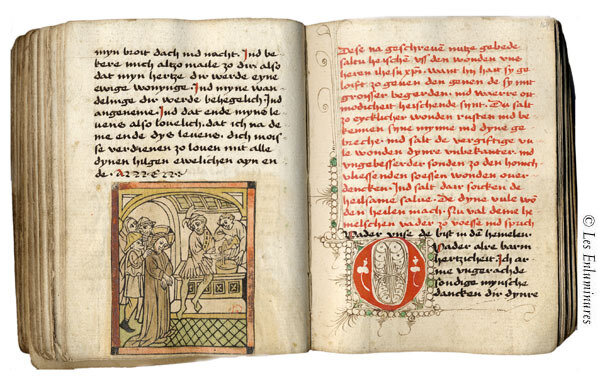 myn broit dach ind nacht. Ind be
kere mich altzo maile zo dir also
dat myn hertze dir werde eyne
ewige wonynge. Ind myne wan
delinge dir werde behegelich Ind
angeneme. Ind dat ende myns le
uens also louelich, dat ich na de
me ende dys leuens, dich moiſ
se verdienen zo louen mit alle
dynen hilgen ewelichen ayn en
de. A
Dese na geschreuen nutze gebede
saltu heischen vſſ den wonden vnſ
heren Want hy hait ſy ge
loifft zo geuen den genen de ſy mit
groſſer begerden ind waerre ou
modicheit heiſchende ſynt. Du ſalt
zo eycklicher wonden ruſten ind be
ſynne myne ind dyne ge
breche ind ſalt de vergiftige vu
le wonden dynre vnbekanter ind
vngebeſſerder ſonden zo den honich
vlieſſenden ſoeſſen wonden ouer
dencken Ind ſalt dair ſoicken de
heilſame ſalue De dyne vule wo
den heilen mach. Nu val deme he
melſchen vader zo voeſſe ind ſpruch
Vader vnſe de biſt in den hemelen
O
Vader alre barm
hertzicheit Ich ar
me vngerachde
ſondige mynſche
dancken dir dynre
© Les Enluminures